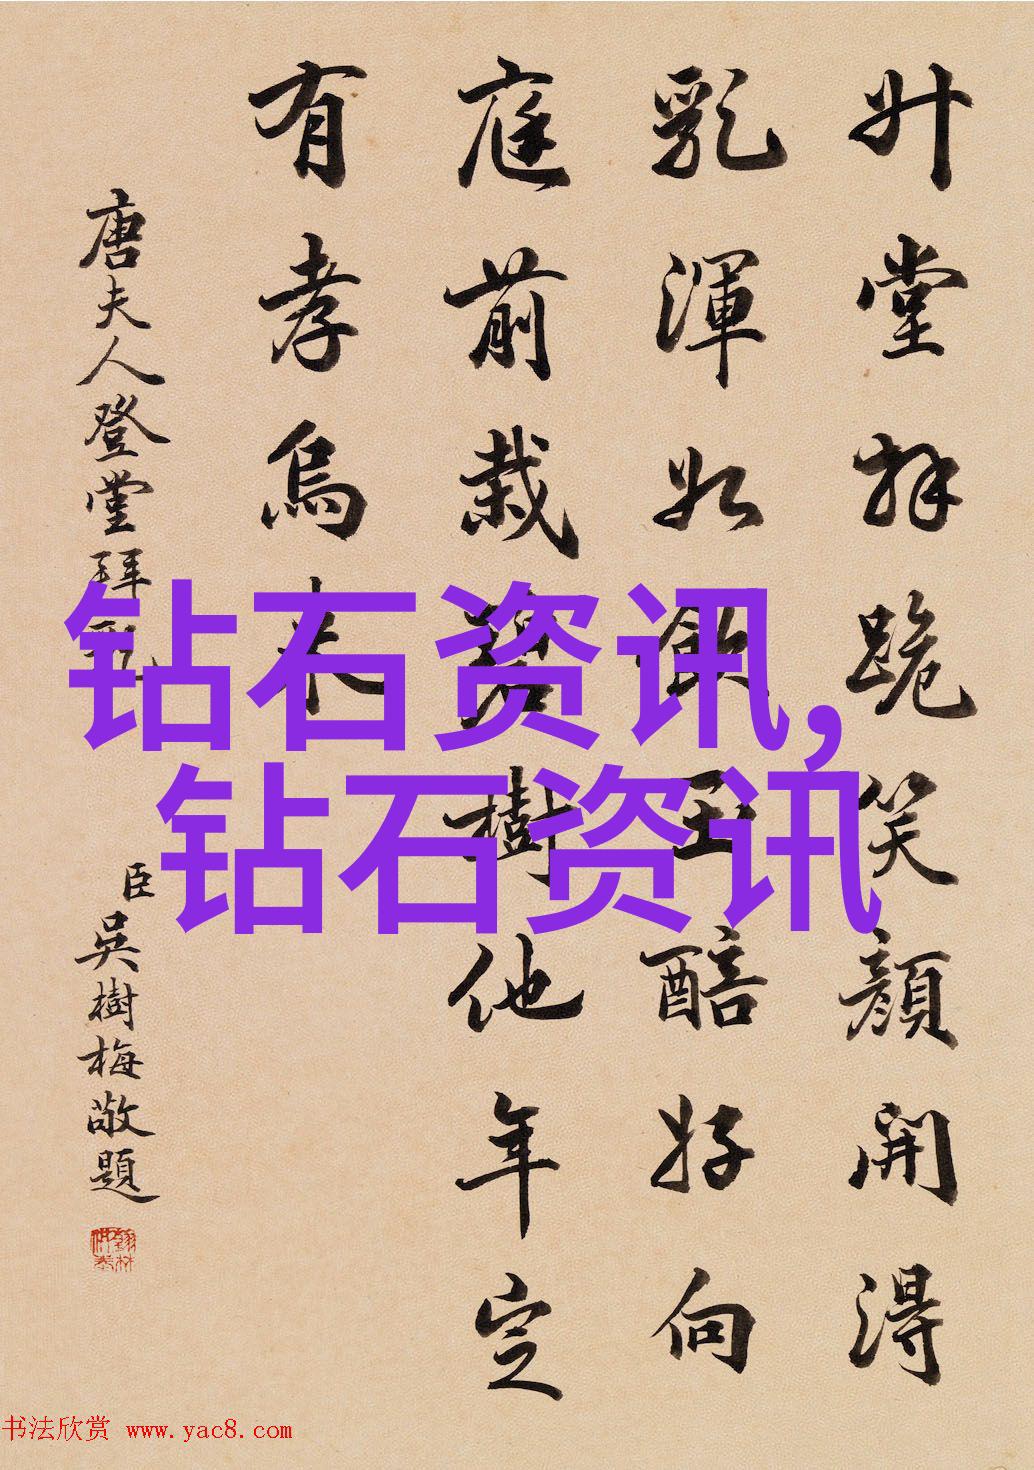 升堂拜跪笑颜開得
乳渾如飲玉醅好向
庭前栽碧樹他年定
有孝烏来
唐夫人登堂拜乳
臣吳樹梅敬題
钻石资讯,
钻石资讯
书法欣赏 www.yac8.com